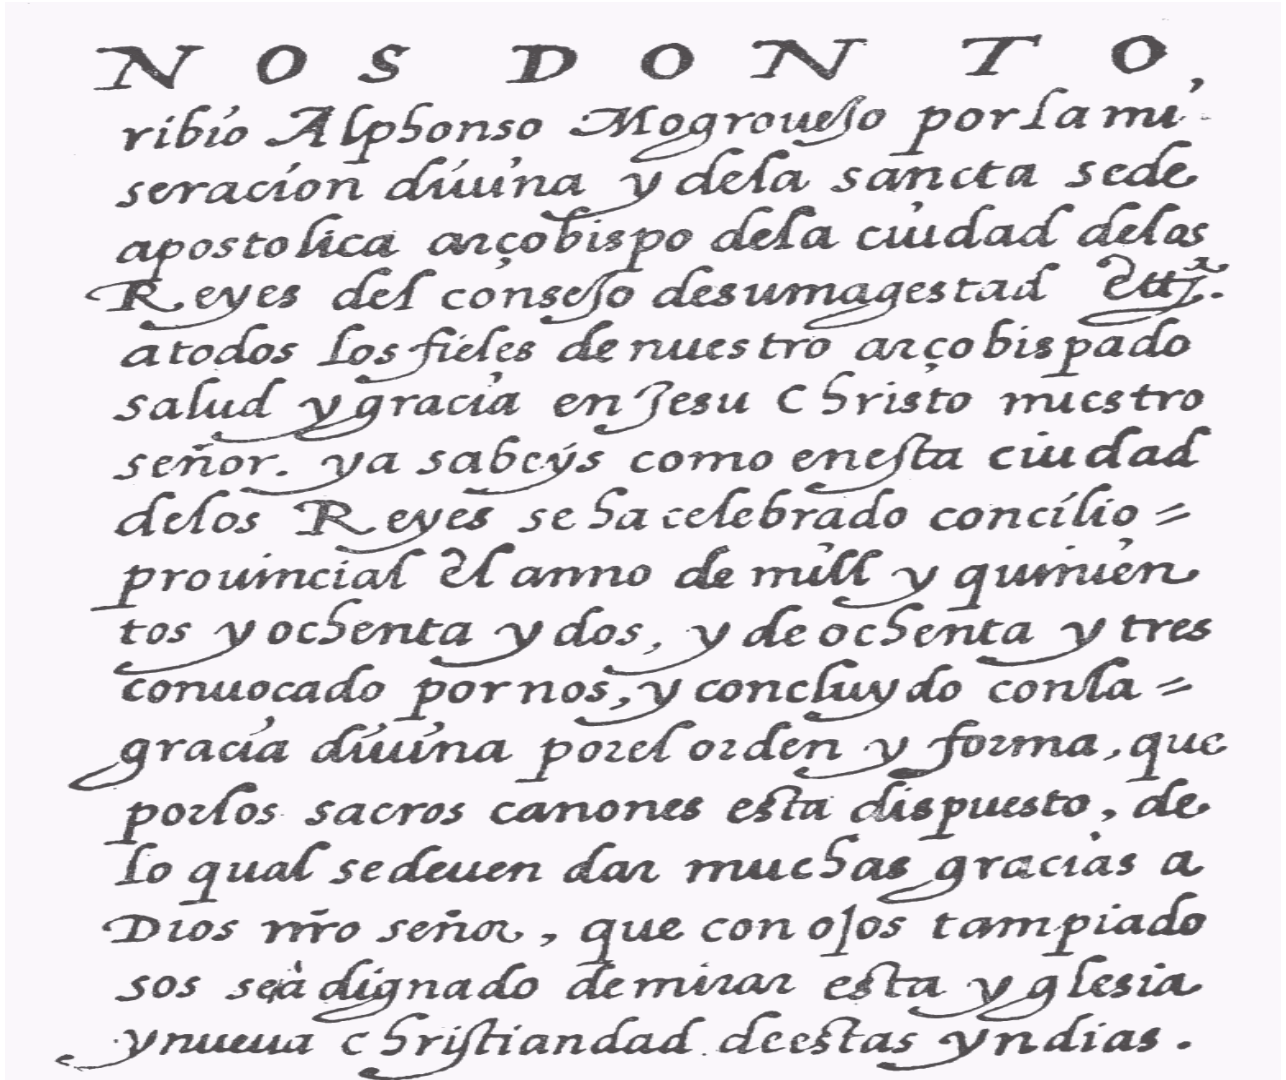 NOS DON TO,
ribio Alphonso Mogrouejo por la mi
seracion diuina y dela sancta sede
apostolica arçobispo dela ciudad delos
Reyes del consejo desumagestad
atodos los fieles de nuestro arçobispado
salud y gracia en Jesu Christo nuestro
señor. ya sabeys como enesta ciudad
delos Reyes se ha celebrado concilio =
prouincial el anno de mill y quinien
tos y ochenta y dos, y de ochenta y tres
conuocado por nos, y concluydo conla =
gracia diuina porel orden y forma, que
porlos sacros canones esta dispuesto, de
lo qual sedeuen dar muchas gracias a
Dios nr̃o señor, que con ojos tampiado
sos seà dignado demirar esta yglesia
ynueua christiandad deestas yndias.